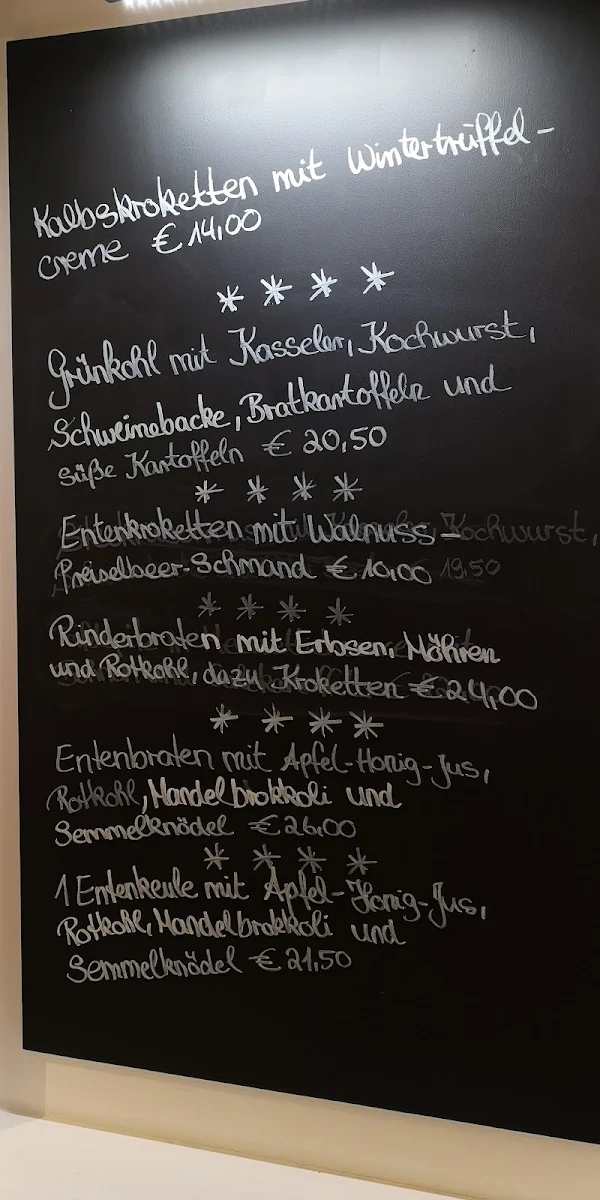 Kalbskroketten mit Wintertrüffel-
creme € 14,00
* * * *
Grünkohl mit Kasseler, Kochwurst,
Schweinebacke, Bratkartoffeln und
süße Kartoffeln € 20,50
* * * *
Entenkroketten mit Walnuss- Kochwurst,
Preiselbeer-Schmand € 10,00 19,50
* * * *
Rinderbraten mit Erbsen, Möhren
und Rotkohl, dazu Kroketten € 24,00
* * * *
Entenbraten mit Apfel-Honig-Jus,
Rotkohl, Mandelbrokkoli und
Semmelknödel € 26,00
* * * *
1 Entenkeule mit Apfel-Honig-Jus,
Rotkohl, Mandelbrokkoli und
Semmelknödel € 21,50